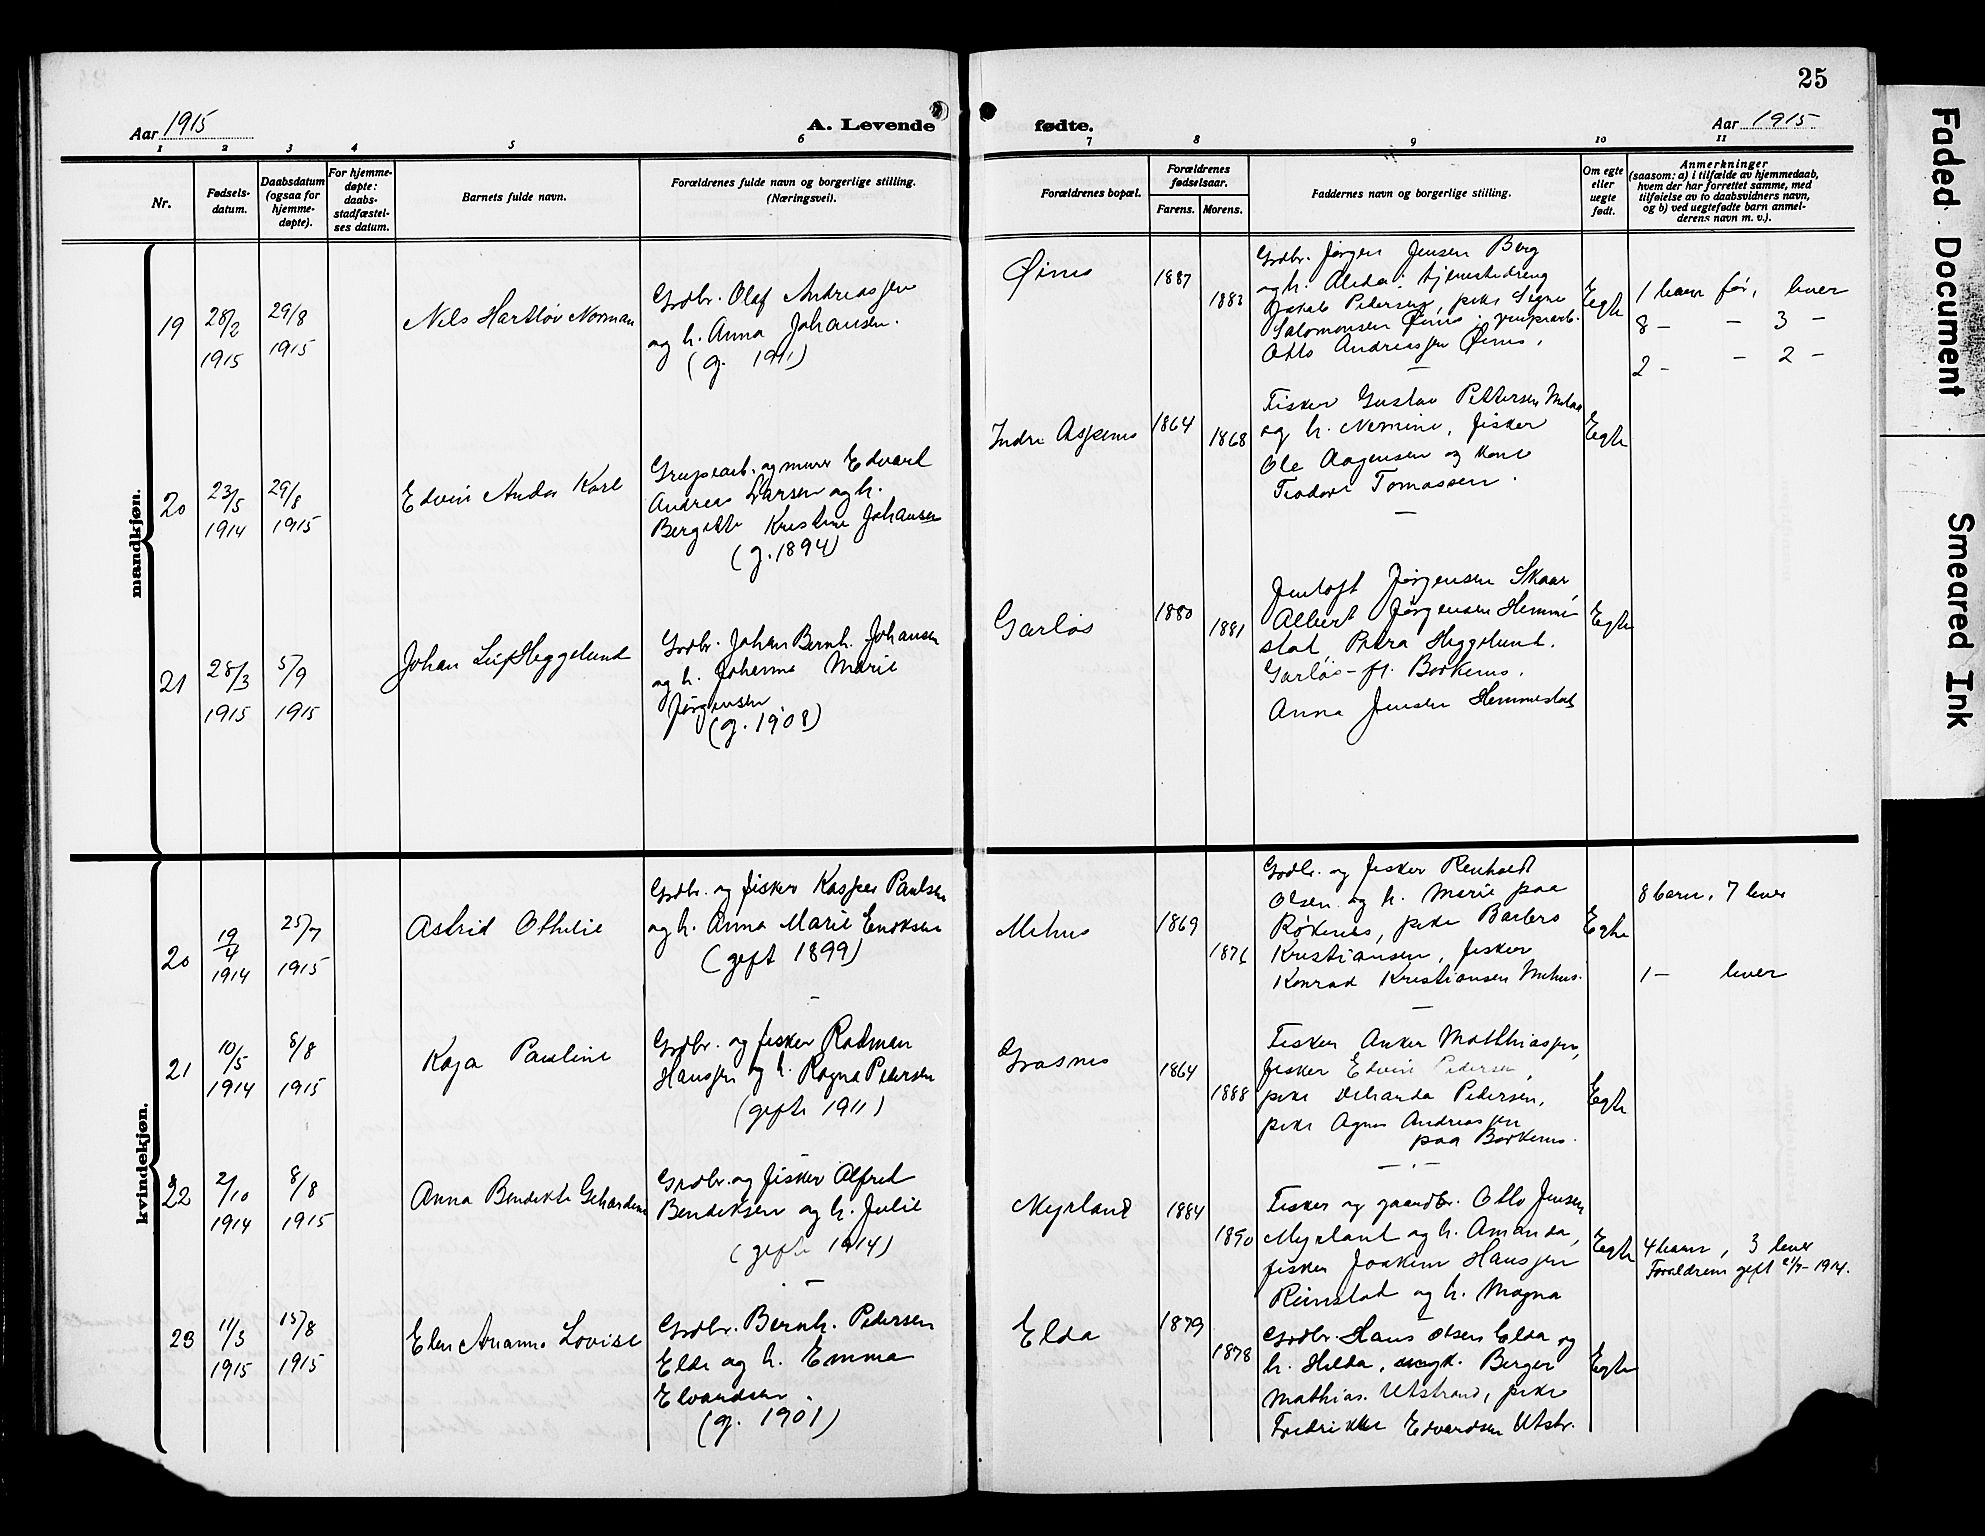 25
Aar 1915
A. Levende
fødte.
Aar 1915
1 2 3 4 5 6 7 8 9 10 11
Nr.
Fødsels-
datum.
Daabsdatum
(ogsaa for
hjemme-
døpte).
For hjemme-
døpte:
daabs-
stadfæstel-
ses datum.
Barnets fulde navn.
Forældrenes fulde navn og borgerlige stilling.
(Næringsvei).
Forældrenes bopæl.
Forældrenes
fødselsaar.
Farens. Morens.
Faddernes navn og borgerlige stilling.
Om egte
eller
uegte
født.
Anmerkninger
(saasom: a) i tilfælde av hjemmedaab,
hvem der har forrettet samme, med
tilføielse av to daabsvidners navn,
og b) ved uegtefødte barn anmel-
derens navn m. v.).
mandkjøn.
19
28/2
1915
29/8
1915
Nils Hartløv Norman
Grdbr. Olaf Andreassen
og h. Anna Johansen.
(g. 1911)
Øines
1887
1883
Grdbr. Jørgen Jensen Berg
og h. Alida; tjenestedreng
Pedersen, pike Signe
Salomonsen Øines; grubearb.
Otto Andreassen Øines.
Egte
1 barn før, lever
8 - - 3 -
2 - - 2 -
20
23/5
1914
29/8
1915
Edvin Andor Karl
Grubearb. og murer Edvard
Andreas Larsen og h.
Bergitte Kristine Johansen
(g. 1894)
Indre Aspenes
1864
1868
Fisker Gustav Pettersen
og h. Nemine, fisker
Ole Aagensen og kone
Teodora Tomassen.
Egte
21
28/3
1915
5/9
1915
Johan Leif Heggelund
Grdbr. Johan Bernh. Johansen
og h. Johanna Marie
Jørgensen
(g. 1908)
Garløs
1880
1881
Jentoft Jørgensen Skaar
Albert Jørgensen Hemme-
stad, Petra Heggelund.
Garløs - fl. Borkenes.
Anna Jensen Hemmestad
Egte
kvindekjøn.
20
19/4
1914
25/7
1915
Astrid Othelie
Grdbr. og fisker Kasper Paulsen
og h. Anna Marie Enoksen
(gift 1899)
Mehus
1869
1876
Grdbr. og fisker Renholdt
Olsen og h. Marie paa
Røkenes, pike Barbro
Kristiansen, fisker
Konrad Kristiansen Mehus.
Egte
8 barn, 7 lever
1 - lever
21
10/5
1914
8/8
1915
Kaja Pauline
Grdbr. og fisker Rodman
Hanssen og h. Ragna Petersen
(gifte 1911)
Grasnes
1864
1888
Fisker Anker Matthiassen,
fisker Edvin Pedersen,
pike Dehanda Pedersen,
pike Agnes Andreassen
paa Borkenes.
Egte
22
2/10
1914
8/8
1915
Anna Bendikte Gehardine
Grdbr. og fisker Alfred
Bendiksen og h. Julie
(gifte 1914)
Myrland
1884
1890
Fisker og gaardbr. Otto Jensen
Myrland og h. Amanda,
fisker Joakim Hanssen
Reinstad og h. Magna
Egte
4 barn, 3 lever
Forældrene gift 21/7 - 1914.
23
11/3
1915
15/8
1915
Elen Arianna Lovise
Grdbr. Bernh. Pedersen
Elde og h. Emma
Edvardsen.
(g. 1901)
Elda
1879
1878
Grdbr. Hans Olsen Elda og
h. Hilda, ungk. Berger
Mathias. Utstrand, pike
Fredrikke Edvardsen Utstr.
Egte
Faded Document
Smeared Ink